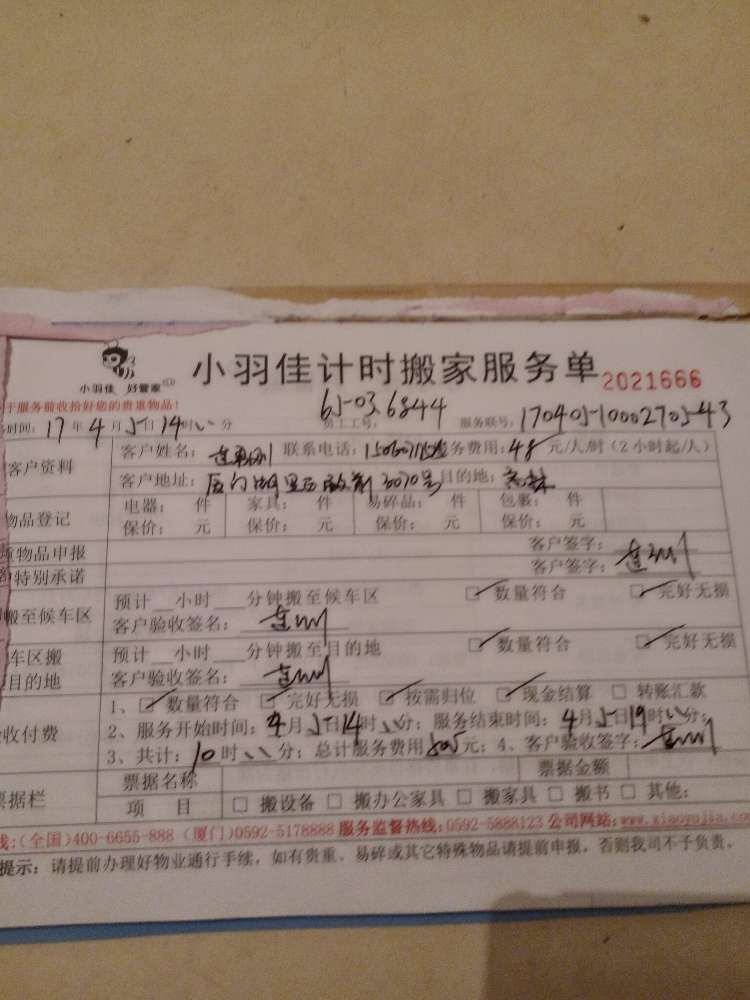 小羽佳 好管家
小羽佳计时搬家服务单 2021666
于服务前收拾好您的贵重物品!
时间: 17年4月5日14时 分 员工工号: 服务联号: 170405-1000270543
65-03 6844
客户资料 客户姓名: 联系电话: 服务费用: 48元/人/时(2小时起/人)
客户地址: 厦门 号 目的地:
物品登记 电器: 件 家具: 件 易碎品: 件 包裹: 件
保价: 元 保价: 元 保价: 元 保价: 元
物品申报 客户签字:
特别承诺 客户签字:
搬至候车区 预计__小时___分钟搬至候车区 数量符合 完好无损
客户验收签名:
车区搬 预计__小时___分钟搬至目的地 数量符合 完好无损
目的地 客户验收签名:
收付费 1、 数量符合 完好无损 按需归位 现金结算 转账汇款
2、服务开始时间: 4月5日14时 分; 服务结束时间: 4月5日19时 分;
3、共计: 10时 分; 总计服务费用 元; 4、客户验收签字:
票据栏 票据名称 票据金额
项 目 搬设备 搬办公家具 搬家具 搬书 其他:
线:(全国)400-6655-888 (厦门)0592-5178888 服务监督热线:0592-5888123 公司网站:www.xiaoyujia.com
提示: 请提前办理好物业通行手续, 如有贵重、易碎或其它特殊物品请提前申报, 否则我司不予负责。